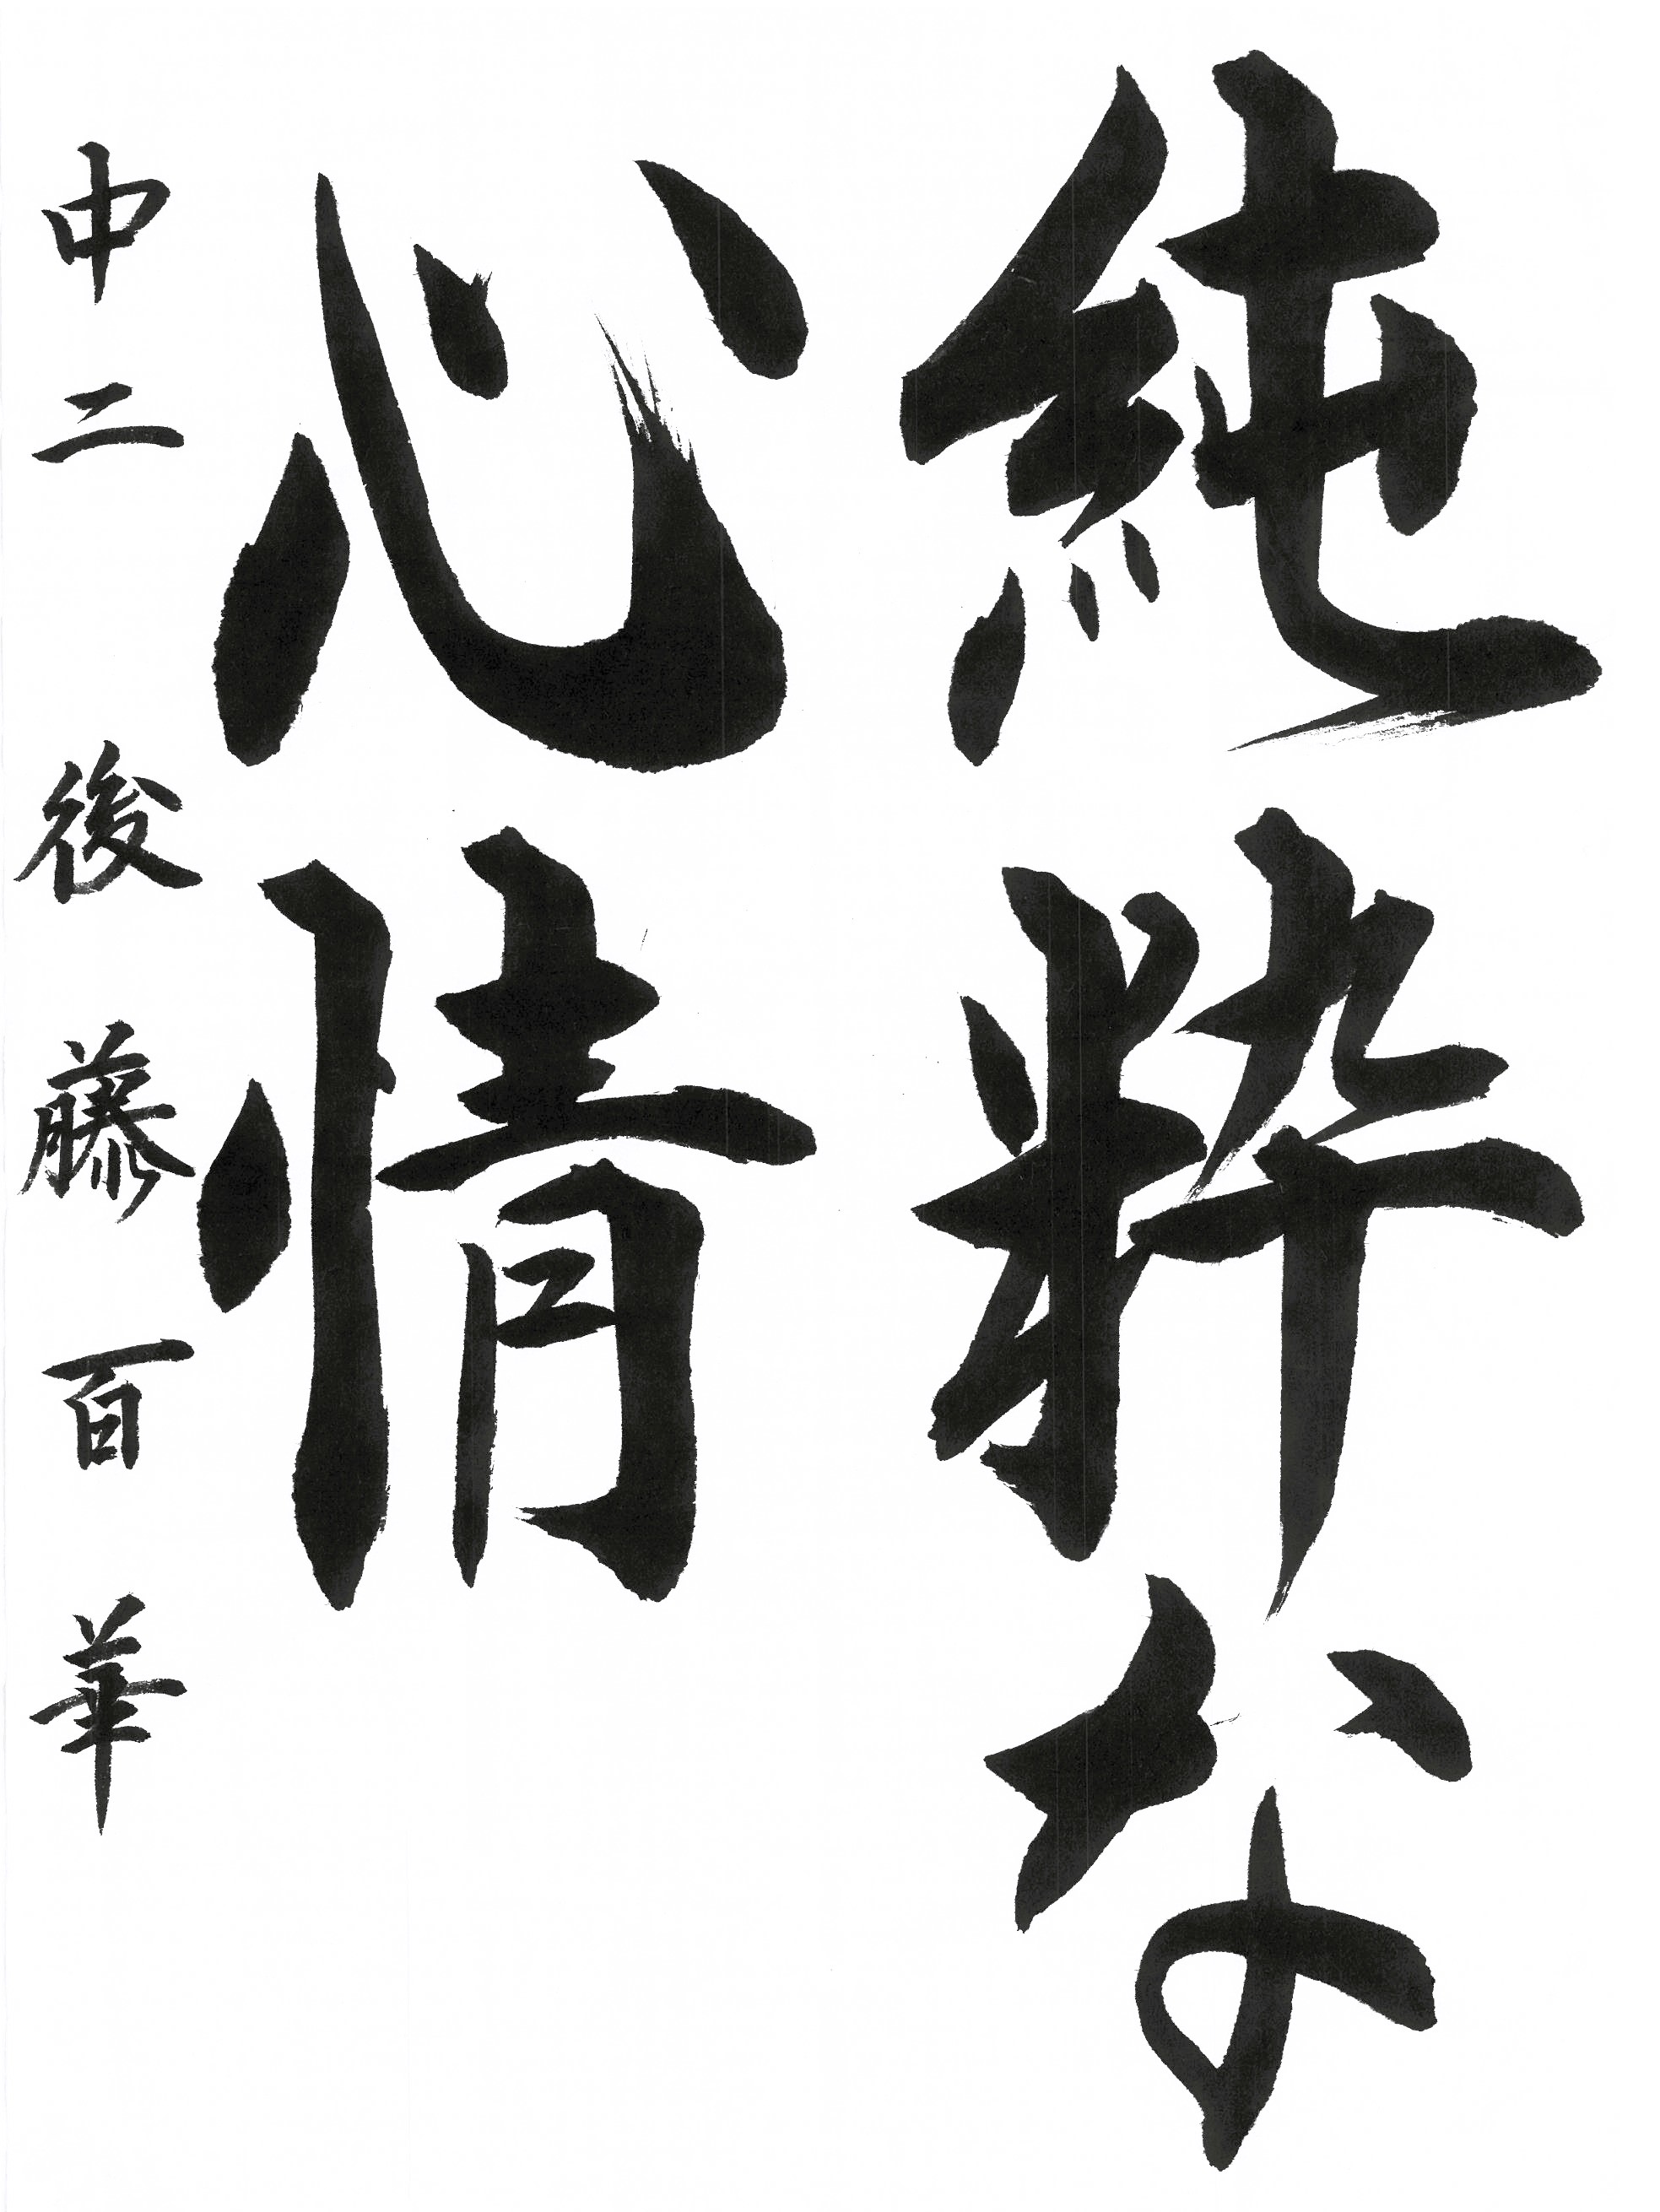 純粋な
心情
中二 後藤百華